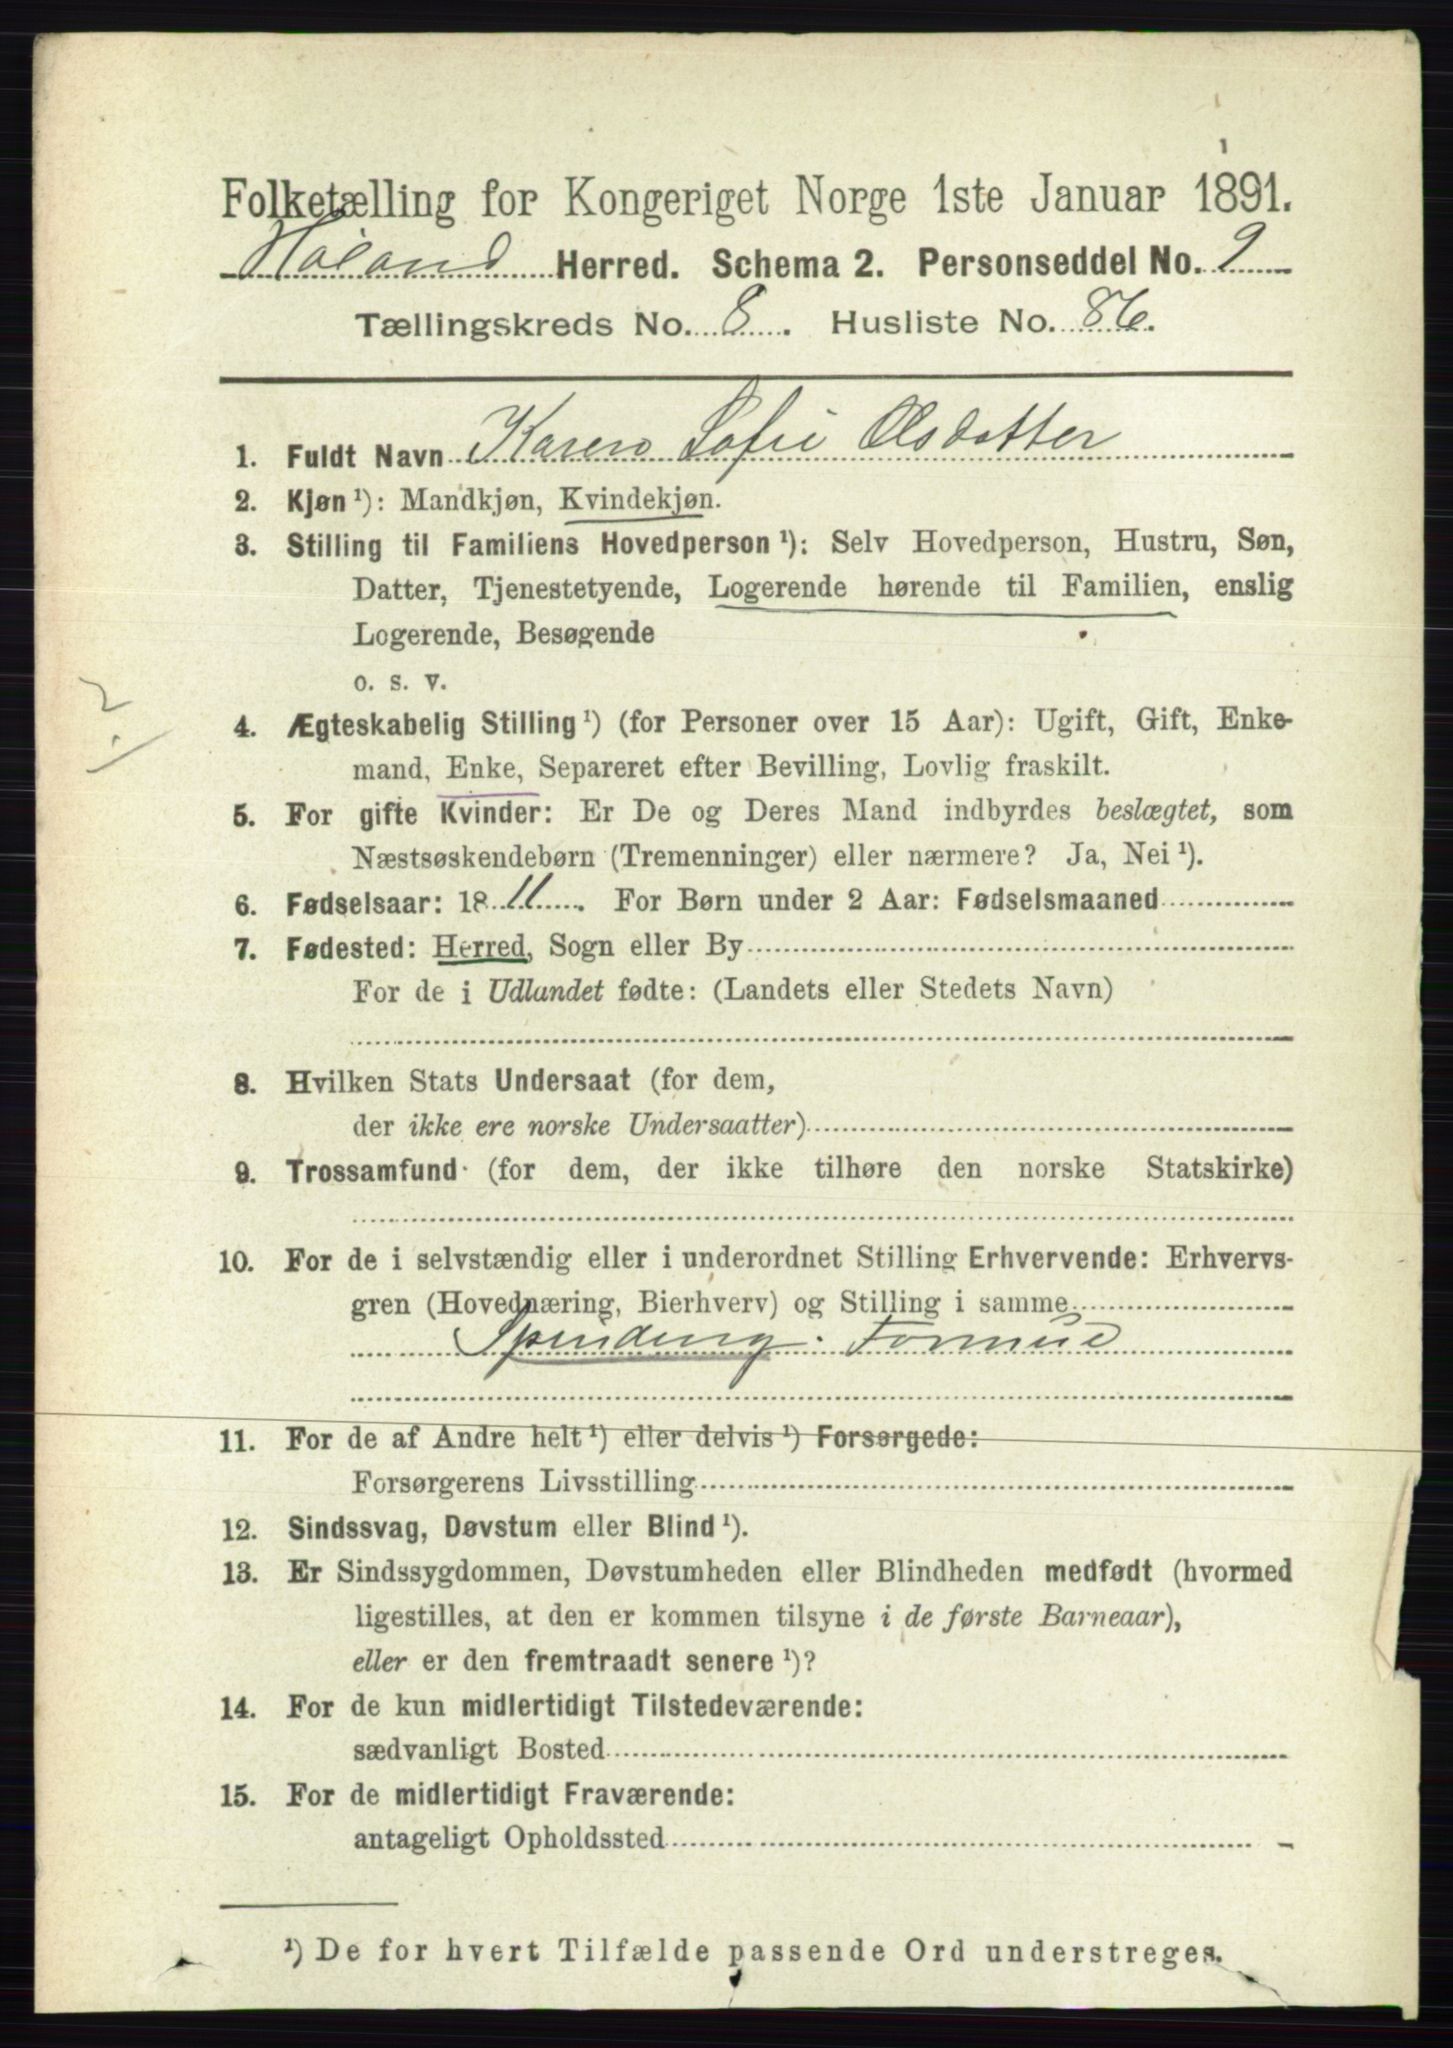 Folketælling for Kongeriget Norge 1ste Januar 1891.
Høland Herred. Schema 2. Personseddel No. 9
Tællingskreds No. 8. Husliste No. 86.
1. Fuldt Navn Karen Sofie Olsdatter
2. Kjøn ¹): Mandkjøn, Kvindekjøn.
3. Stilling til Familiens Hovedperson ¹): Selv Hovedperson, Hustru, Søn,
Datter, Tjenestetyende, Logerende hørende til Familien, enslig
Logerende, Besøgende
o. s. v.
4. Ægteskabelig Stilling ¹) (for Personer over 15 Aar): Ugift, Gift, Enke-
mand, Enke, Separeret efter Bevilling, Lovlig fraskilt.
5. For gifte Kvinder: Er De og Deres Mand indbyrdes beslægtet, som
Næstsøskendebørn (Tremenninger) eller nærmere? Ja, Nei ¹).
6. Fødselsaar: 1811. For Børn under 2 Aar: Fødselsmaaned
7. Fødested: Herred, Sogn eller By
For de i Udlandet fødte: (Landets eller Stedets Navn)
8. Hvilken Stats Undersaat (for dem,
der ikke ere norske Undersaatter)
9. Trossamfund (for dem, der ikke tilhøre den norske Statskirke)
10. For de i selvstændig eller i underordnet Stilling Erhvervende: Erhvervs-
gren (Hovednæring, Bierhverv) og Stilling i samme
Spinding. Formue
11. For de af Andre helt ¹) eller delvis ¹) Forsørgede:
Forsørgerens Livsstilling
12. Sindssvag, Døvstum eller Blind ¹).
13. Er Sindssygdommen, Døvstumheden eller Blindheden medfødt (hvormed
ligestilles, at den er kommen tilsyne i de første Barneaar),
eller er den fremtraadt senere ¹)?
14. For de kun midlertidigt Tilstedeværende:
sædvanligt Bosted
15. For de midlertidigt Fraværende:
antageligt Opholdssted
¹) De for hvert Tilfælde passende Ord understreges.